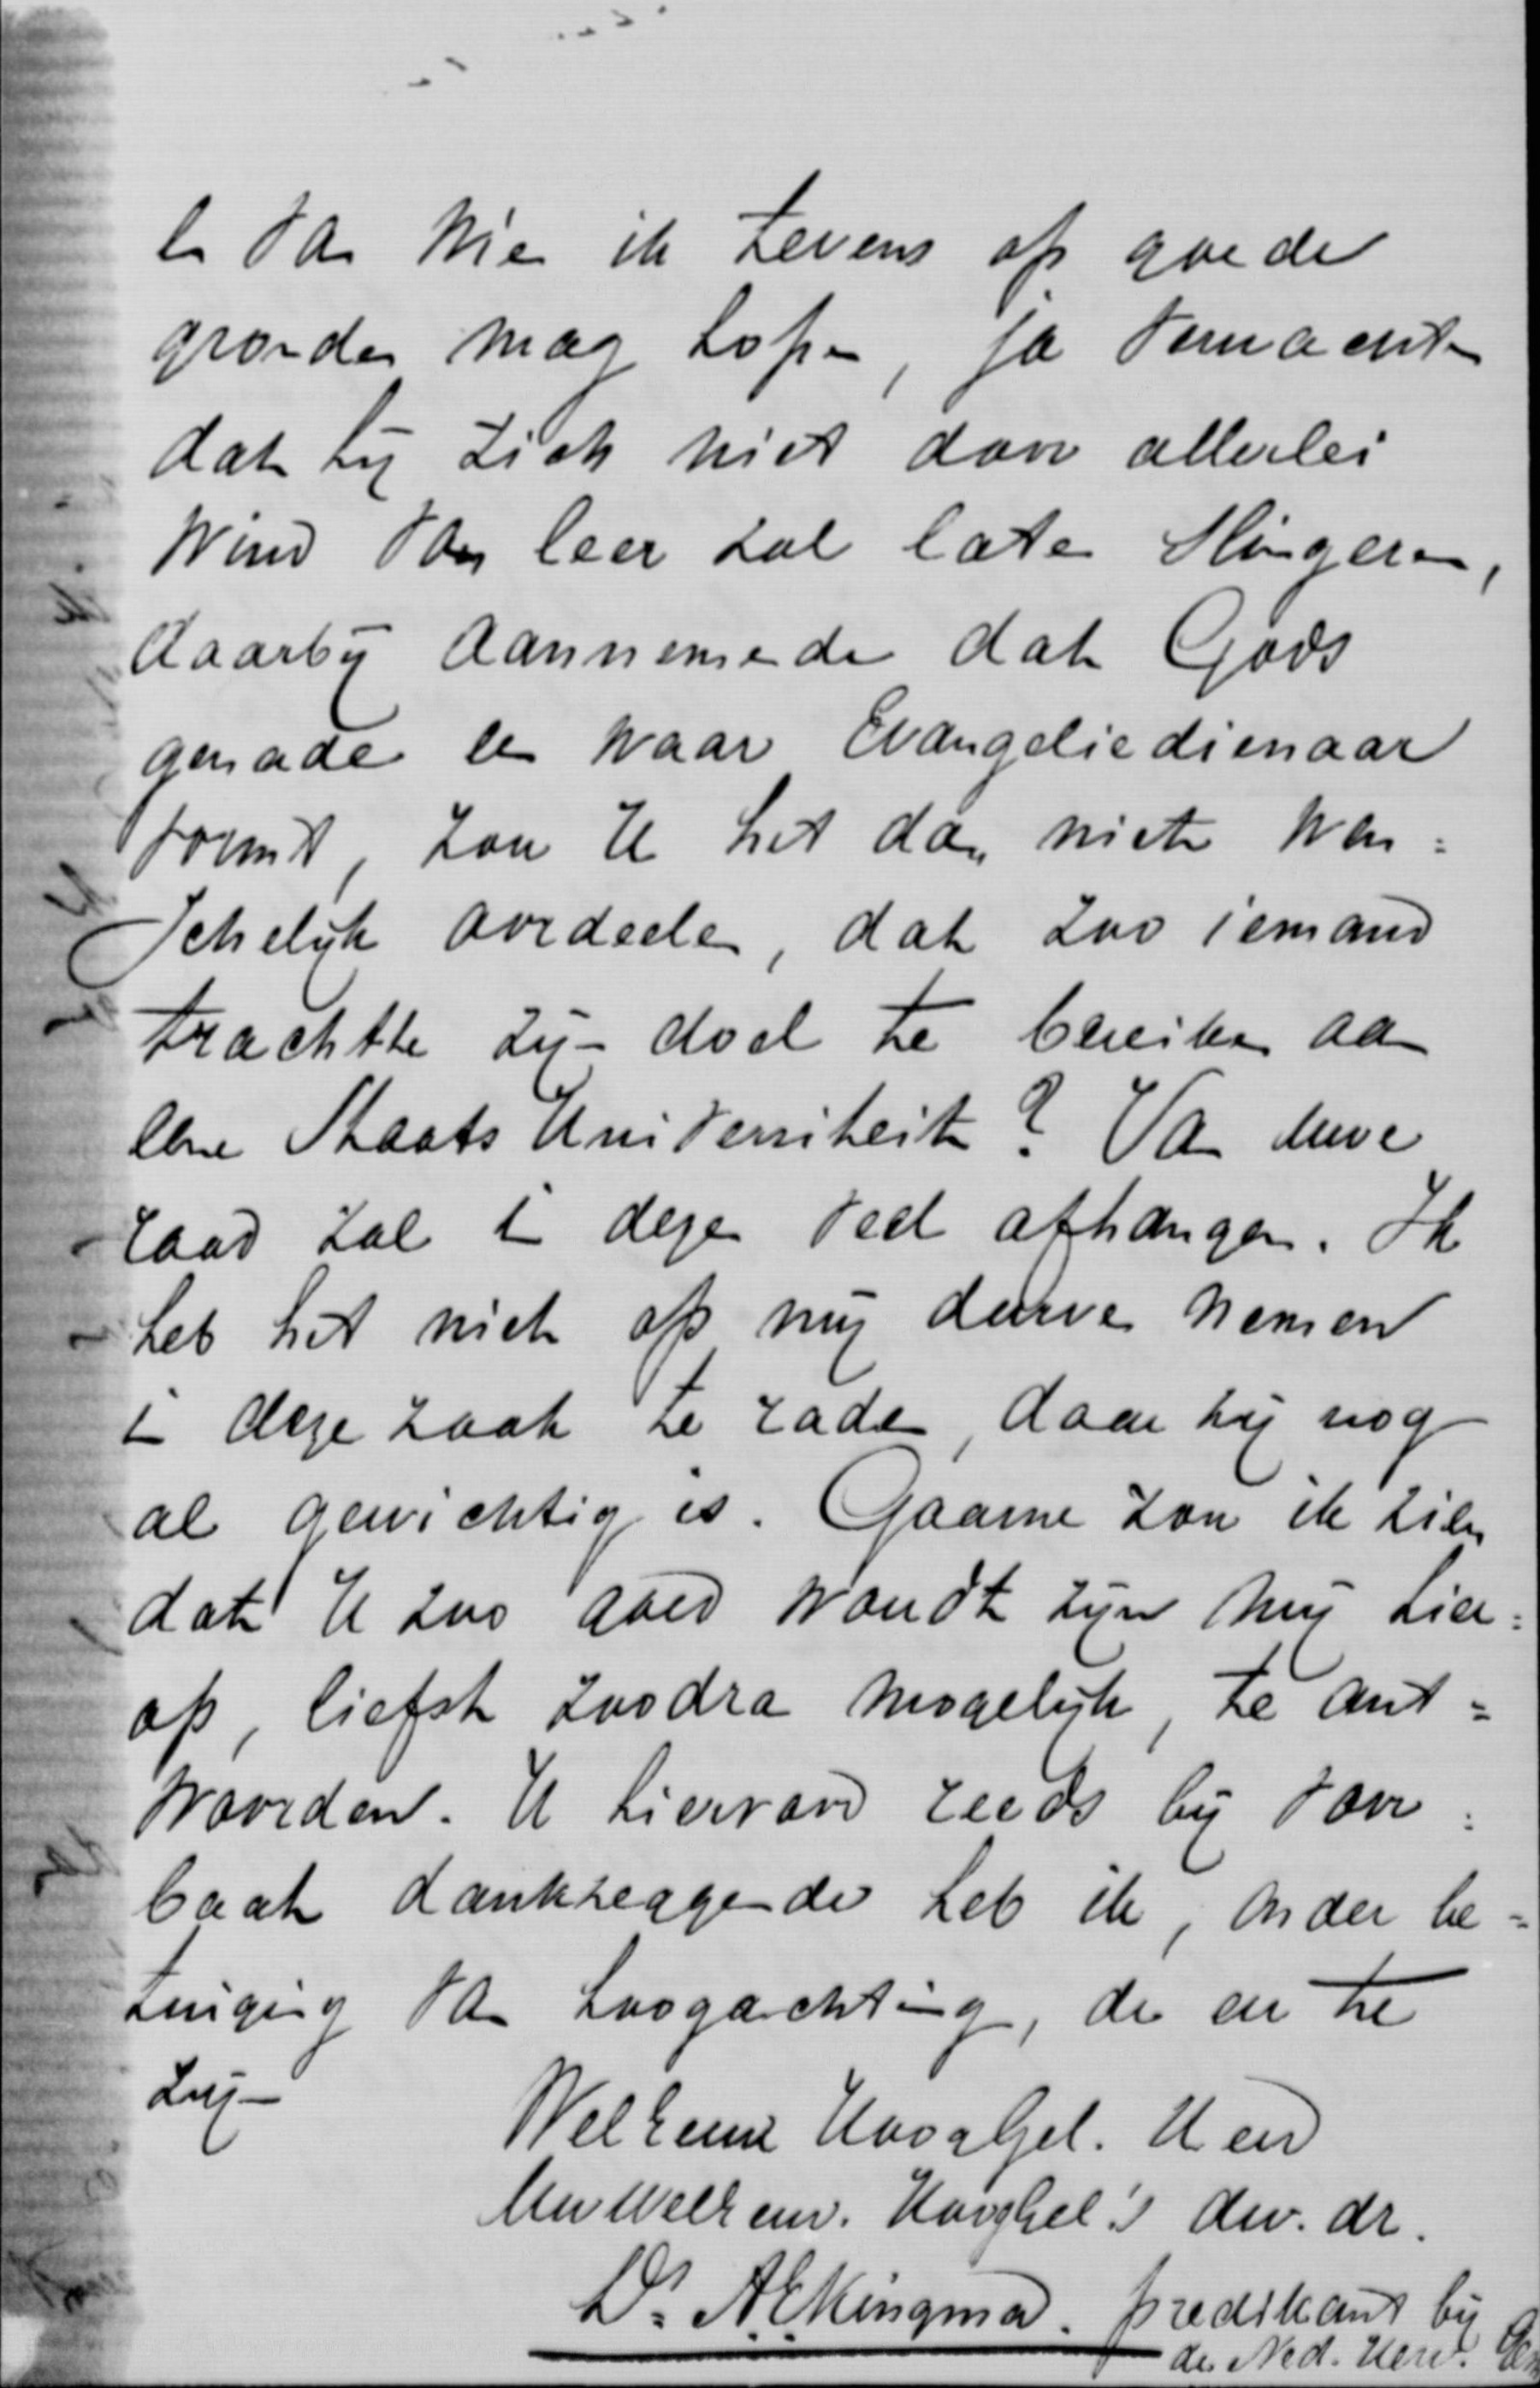 en van wien ik tevens op goede
gronden mag hopen, ja verwachten
dat hij zich niet door allerlei
wind van leer zal laten slingeren,
daarbij aannemende dat Gods
genade een waar Evangeliedienaar
vormt, zou U het dan niet wen=
schelijk oordeelen, dat zoo iemand
trachtte zijn doel te bereiken aan
eene Staats Universiteit? Van Uwe
raad zal in dezen veel afhangen. Ik
heb het niet op mij durven nemen
in deze zaak te raden, daar zij nog
al gewichtig is. Gaarne zou ik zien
dat U zoo goed woudt zijn mij hier=
op, liefst zoodra mogelijk, te ant=
woorden. U hiervoor reeds bij voor=
baat dankzeggende heb ik, onder be=
tuiging van hoogachting, de eer te
zijn
WelEerw HoogGel. U en
Uw WelEerw. HoogGel.'s dw. dr.
Ds. A.E. Kingma. predikant bij
de Ned. Herv. Gem